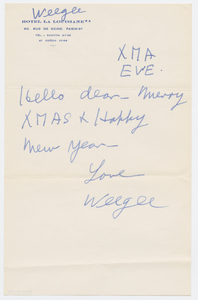 Weegee
HOTEL LA LOUISIANE
60, RUE DE SEINE, PARIS-6e
XMA
EVE.
Hello dear - Merry
XMAS & Happy
New Year -
Love
Weegee